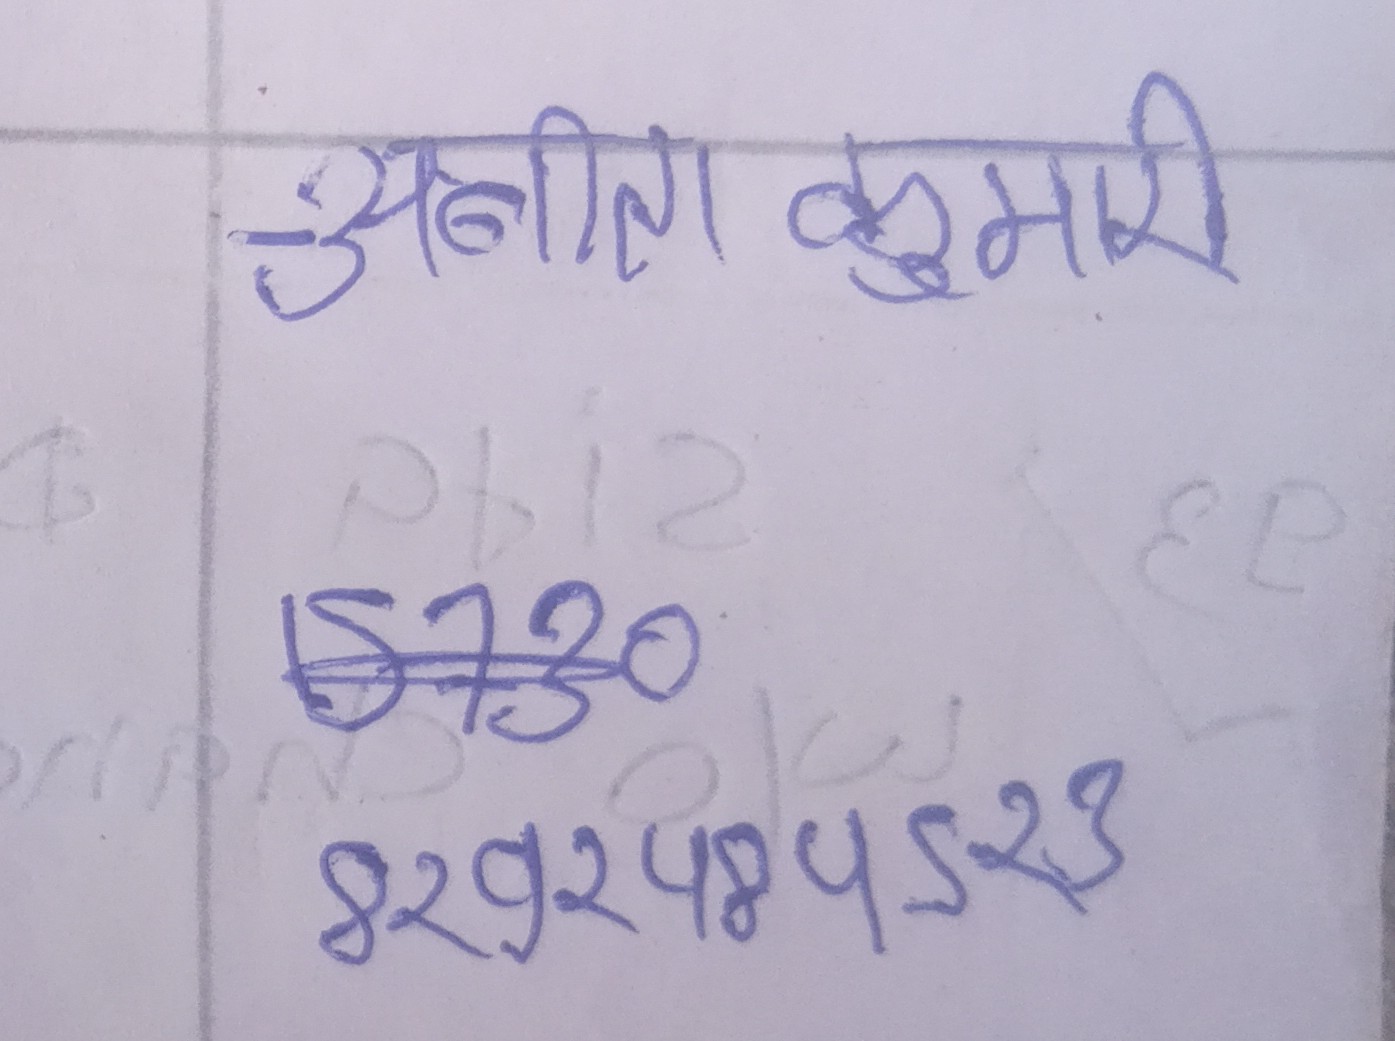 अनीता कुमारी
15730
8292484523